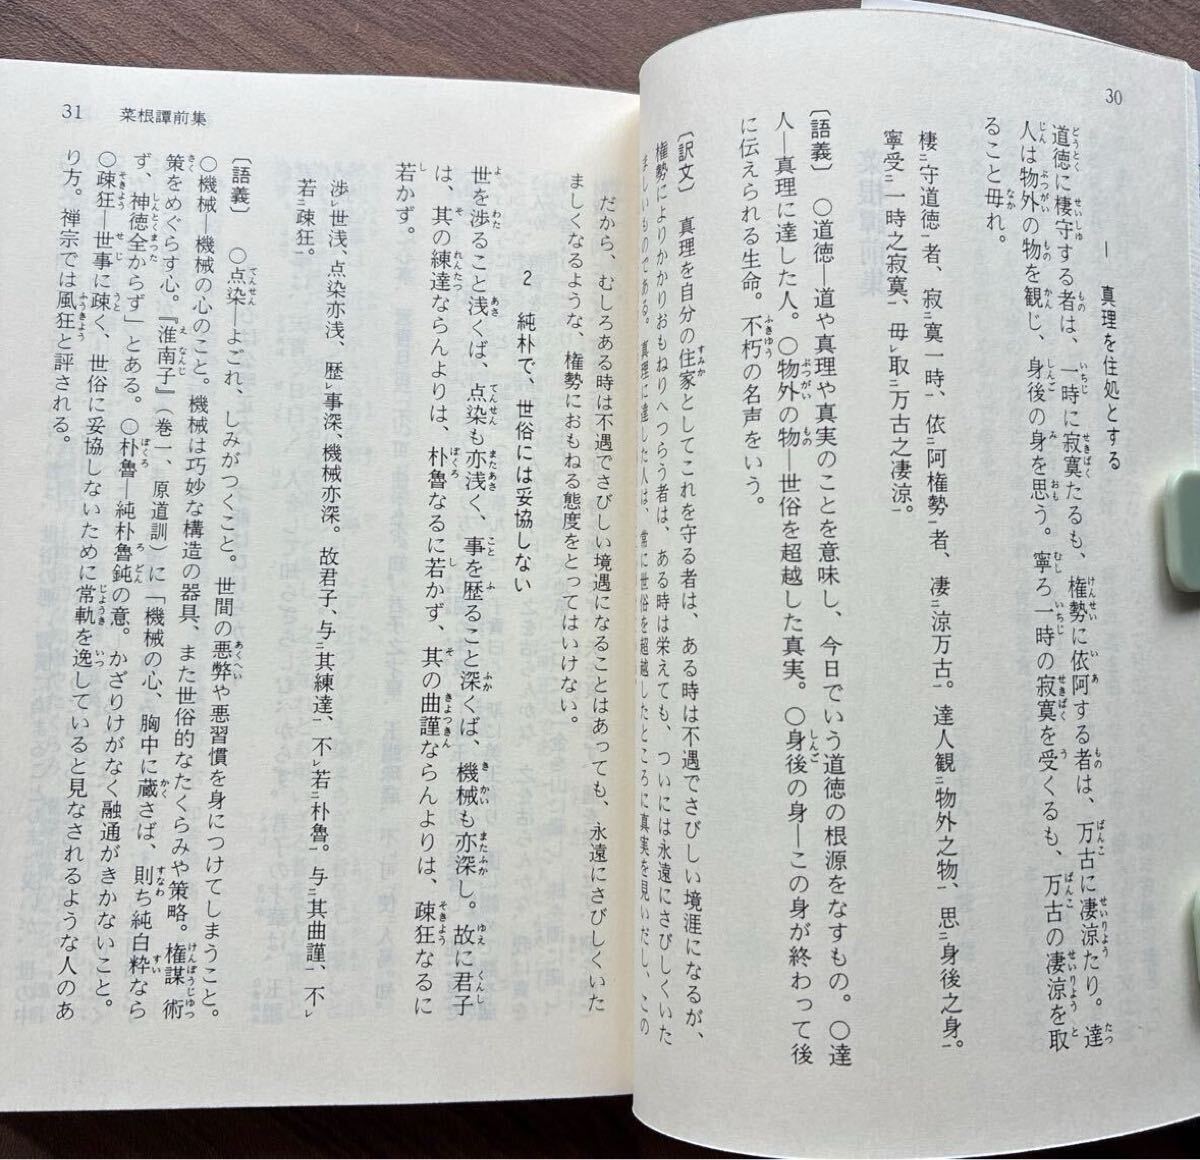 30
1 真理を住処とする
道徳に棲守する者は、一時に寂寞たるも、権勢に依阿する者は、万古に凄涼たり。達
人は物外の物を観じ、身後の身を思う。寧ろ一時の寂寞を受くるも、万古の凄涼を取
ること毋れ。
棲守道徳者、寂寞一時、依阿権勢者、凄涼万古。達人観物外之物、思身後之身。
寧受一時之寂寞、毋取万古之凄涼。
〔語義〕 〇道徳―道や真理や真実のことを意味し、今日でいう道徳の根源をなすもの。〇達
人―真理に達した人。〇物外の物―世俗を超越した真実。〇身後の身―この身が終わって後
に伝えられる生命。不朽の名声をいう。
〔訳文〕 真理を自分の住家としてこれを守る者は、ある時は不遇でさびしい境涯になるが、
権勢によりかかりおもねりへつらう者は、ある時は栄えても、ついには永遠にさびしくいた
ましいものである。真理に達した人は、常に世俗を超越したところに真実を見いだし、この
31 菜根譚前集
だから、むしろある時は不遇でさびしい境遇になることはあっても、永遠にさびしくいた
ましくなるような、権勢におもねる態度をとってはいけない。
2 純朴で、世俗には妥協しない
世を渉ること浅くば、点染も亦浅く、事を歴ること深くば、機械も亦深し。故に君子
は、其の練達ならんよりは、朴魯なるに若かず、其の曲謹ならんよりは、疎狂なるに
若かず。
渉世浅、点染亦浅、歴事深、機械亦深。故君子、与其練達、不若朴魯。与其曲謹、不
若疎狂。
〔語義〕 〇点染―よごれ、しみがつくこと。世間の悪弊や悪習慣を身につけてしまうこと。
〇機械―機械の心のこと。機械は巧妙な構造の器具、また世俗的なたくらみや策略。権謀術
策をめぐらす心。『淮南子』(巻一、原道訓)に「機械の心、胸中に蔵さば、則ち純白粋なら
ず、神徳全からず」とある。〇朴魯―純朴魯鈍の意。かざりけがなく融通がきかないこと。
〇疎狂―世事に疎く、世俗に妥協しないために常軌を逸していると見なされるような人のあ
り方。禅宗では風狂と評される。